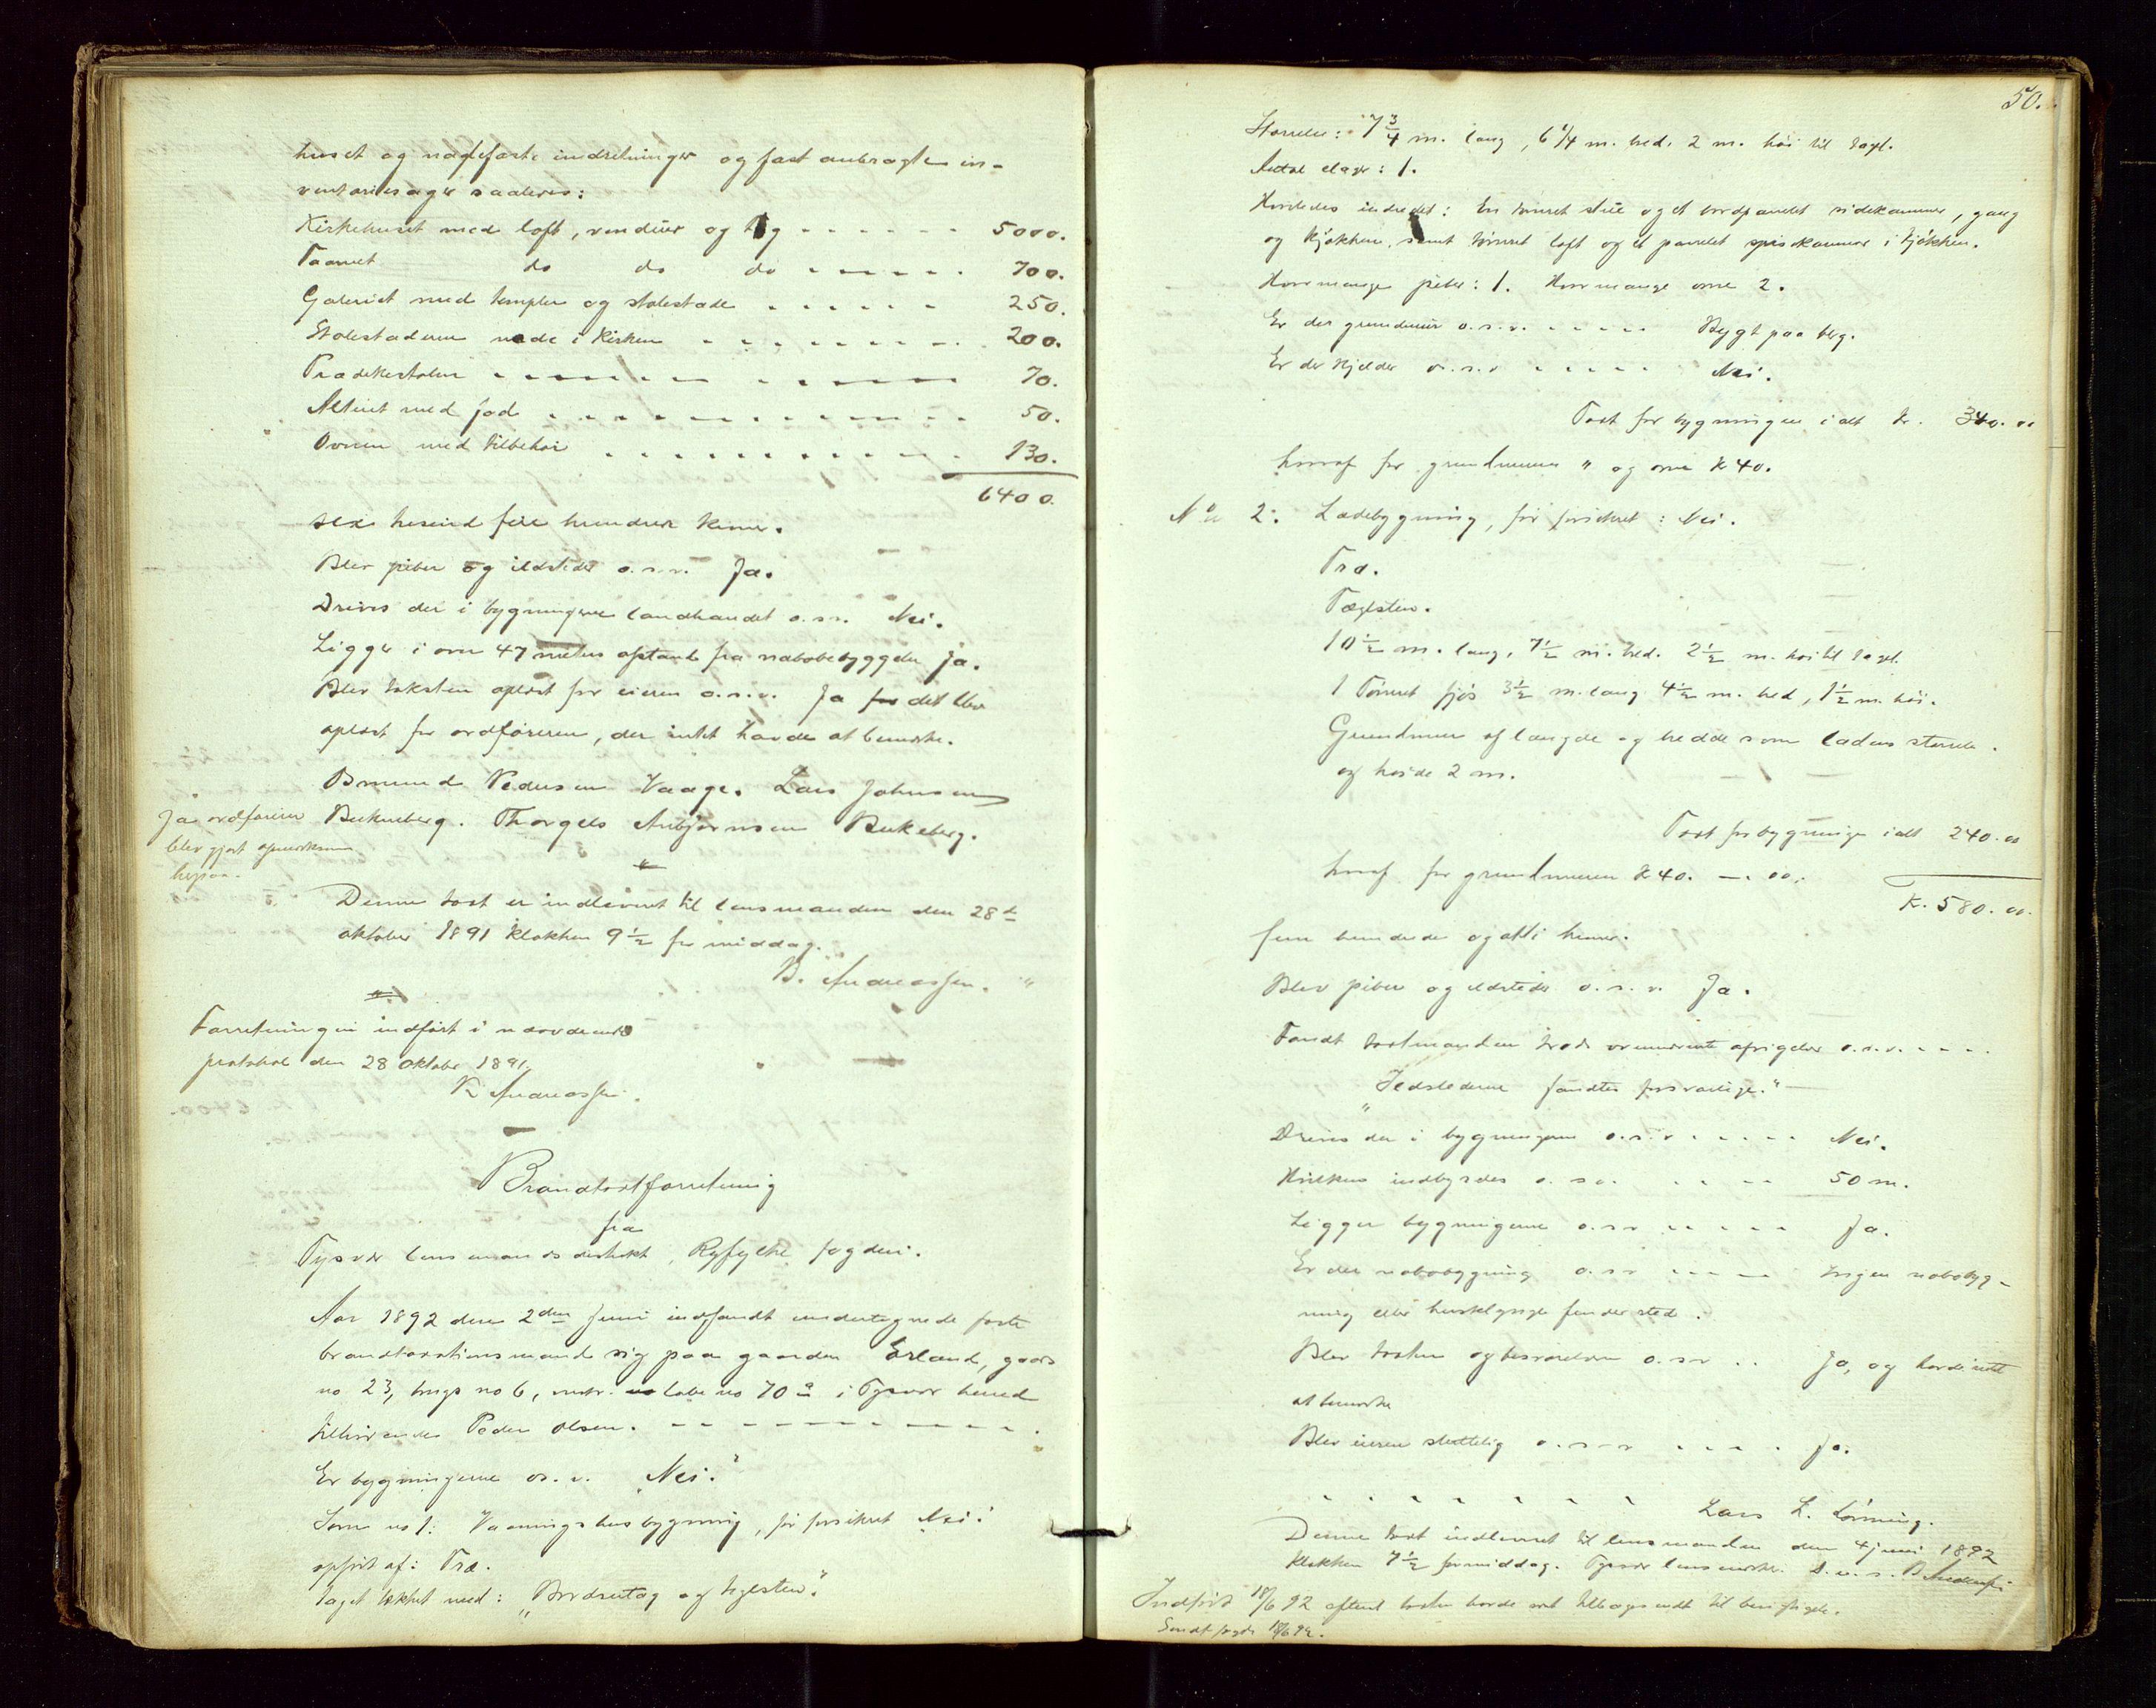 huset og naglefaste indretninger og fast anbragte in-
ventariesager saaledes:
Kirkehuset med loft, vinduer og tag - - - - - - 5000.
Taarnet do do do - - - - - 700.
Galeriet med templer og stolestade - - - - - - 250.
Stolestadene nede i Kirken - - - - - - - - 200.
Prædikestolen - - - - - - - - - - 70.
Alteret med fod - - - - - - - - - - - 50.
Ovnen med tilbehør - - - - - - - - - - 130.
6400.
sex tusind fire hundrede kroner.
Blev piber og ildsteder o.s.v. Ja.
Drives der i bygningerne landhandel o.s.v. Nei.
Ligger i over 47 meters afstand fra nabobebyggelse Ja.
Blev taksten oplæst for eieren o.s.v. Ja det blev
oplæst for ordføreren, der intet havde at bemærke.
Pedersen Vaage. Lars Johnsen
Ja ordføreren
blev gjort opmærksom
herpaa.
Thorgels Asbjørnsen
Denne taxt er indleveret til lensmanden den 28de
oktober 1891 klokken 9½ formiddag.
B. Andreassen.
Forretningen indført i nærværende
protokol den 28 oktober 1891.
B. Andreassen.
Brandtaxtforretning
fra
Tysvær lensmandsdistrikt, Ryfylke fogderi.
Aar 1892 den 2den Juni indfandt undertegnede faste
brandtaxtionsmænd sig paa gaarden Erland, gaards
no 23, brugs no 6, matr. løbe no 70a i Tysvær herred
tilhørende Peder Olsen. - - - - - - - - - -
Er bygningerne o.s.v. Nei.
Som no 1: Vaaningshusbygning, før forsikret Nei.
opført af: Træ.
taget tækket med: "Bordsutag og teglsten."
50.
Størrelse: 7¾ m. lang, 6¼ m. bred, 2 m. høi til taget.
Antal etager: 1.
Hvorledes indredet: En tømret stue og et bordpanelet sidekammer, gang
og kjøkken, samt tømret loft og et panelet spisekammer i kjøkken.
Hvormange piber: 1. Hvormange ovne 2.
Er der grundmur o.s.v. - - - - - Bygt paa berg.
Er der kjelder o.s.v - - - - - Nei.
Taxt for bygningen i alt kr. 340.00
hvoraf for grundmuren " og ovne K 40.
No 2: Ladebygning, før forsikret: Nei.
Træ.
Teglsten.
10½ m. lang, 7½ m. bred. 2½ m. høi til taget.
1 Tømret fjøs 3½ m. lang 4½ m. bred, 1½ m. høi.
Grundmur af længde og bredde som ladens størrelse.
og høide 2 m.
Taxt for bygningen i alt 240.00
hvoraf for grundmuren K 40. — . 00.
K. 580.00.
fem hundrede og otti kroner.
Blev piber og ildsteder o.s.v. Ja.
Fandt taxtmanden trods ovennævnte afvigelser o.s.v. - - - -
"Ildstederne fandtes forsvarlige."
Drives der i bygningerne o.s.v - - - - - Nei.
Hvilken indbyrdes o.s.v. - - - - 50 m.
Ligger bygningerne o.s.v - - - - - Ja.
Er der nabobygning o.s.v - - - - Ingen nabobyg-
ning eller husklynge finder sted.
Blev taxten og besvarelsen o.s.v - - Ja, og havde intet
at bemærke
Blev eieren sluttelig o.s.v - - - - Ja.
Lars L. Lønning.
Denne taxt indleveret til lensmanden den 4 juni 1892
klokken 7½ formiddag. Tysvær lensmandsk. d.u.s. B. Andreassen
Indført 18/6 92 efterat taxten havde været tilbagesendt til berigtigelse.
Sendt fogden 18/6 92.